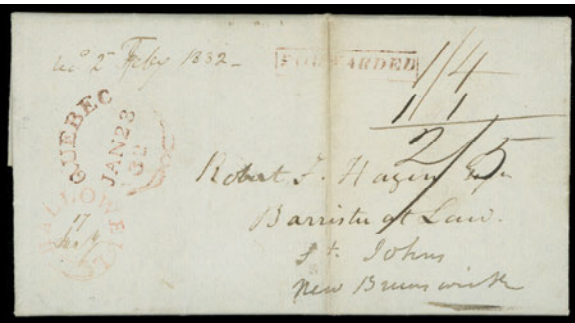 recd 2d Feby 1832_
FORWARDED
1/4
1/1
2/5
QUEBEC
JAN 23
32
HALLOWELL
17
Jany
Robert F. Hazen Esqr
Barrister at Law.
St. Johns
New Brunswick